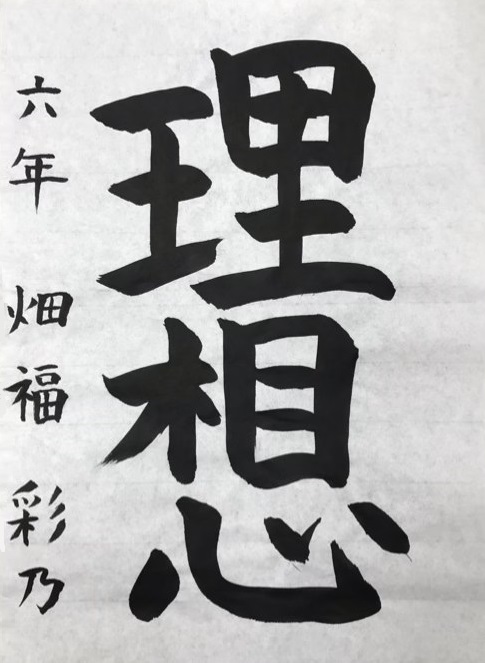 理想
六年 畑福 彩乃